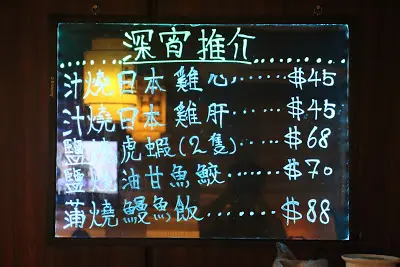 深宵推介
汁燒日本雞心......$45
汁燒日本雞肝......$45
鹽燒虎蝦(2隻)......$68
鹽燒油甘魚鮫......$70
蒲燒鰻魚飯......$88